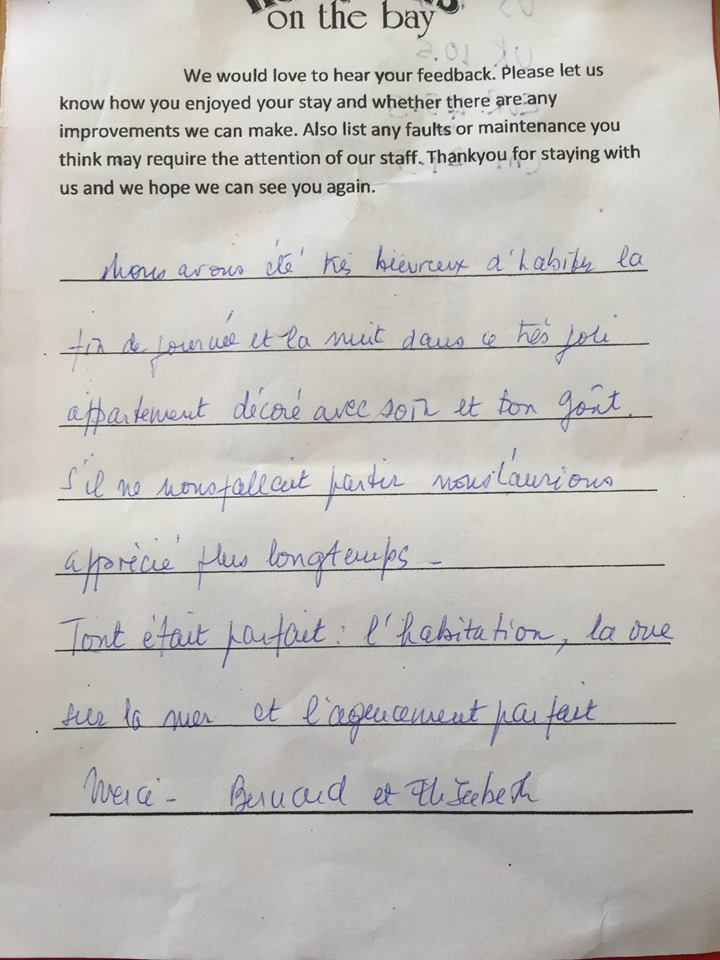 on the bay
We would love to hear your feedback. Please let us
know how you enjoyed your stay and whether there are any
improvements we can make. Also list any faults or maintenance you
think may require the attention of our staff. Thankyou for staying with
us and we hope we can see you again.
Nous avons été très hieureux d'habiter la
fin de journée et la nuit dans ce très joli
appartement décoré avec soin et bon goût.
S'il ne nous fallait partir nous l'aurions
apprécié plus longtemps -
Tout était parfait : l'habitation, la vue
sur la mer et l'agencement parfait
Merci - Bernard et Elisabeth